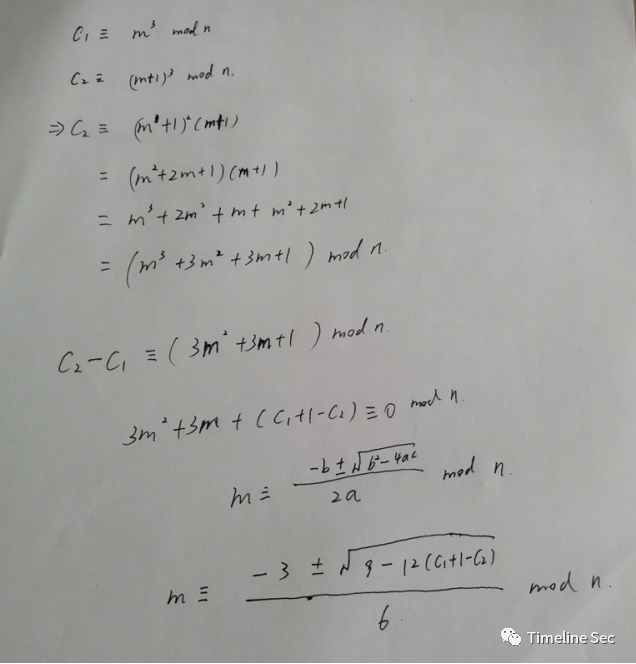 C₁ ≡ m³ mod n
C₂ ≡ (m+1)³ mod n.
⇒ C₂ ≡ (m+1)²(m+1)
= (m²+2m+1)(m+1)
= m³+2m²+m+m²+2m+1
= (m³+3m²+3m+1) mod n.
C₂-C₁ ≡ (3m²+3m+1) mod n.
3m²+3m+(C₁+1-C₂)≡0 mod n.
m ≡ (-b±√(b²-4ac))/(2a) mod n.
m ≡ (-3±√(9-12(C₁+1-C₂)))/6 mod n.
Timeline Sec